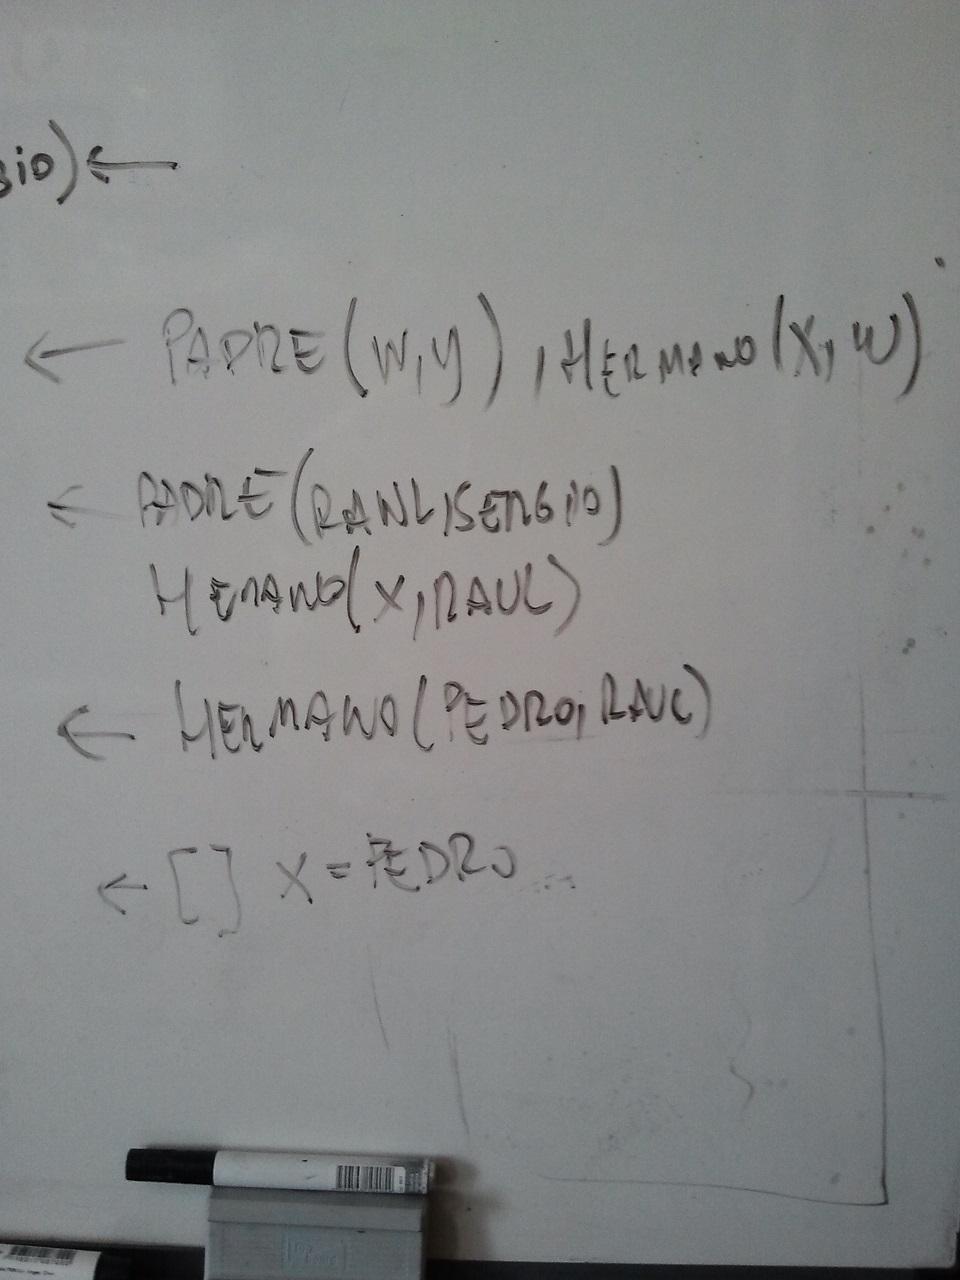 sio) ←
← PADRE (W,Y) , HERMANO (X, W)
← PADRE (RAUL, SERGIO)
HEMANO (X, RAUL)
← HERMANO (PEDRO, RAUL)
← [] X = PEDRO